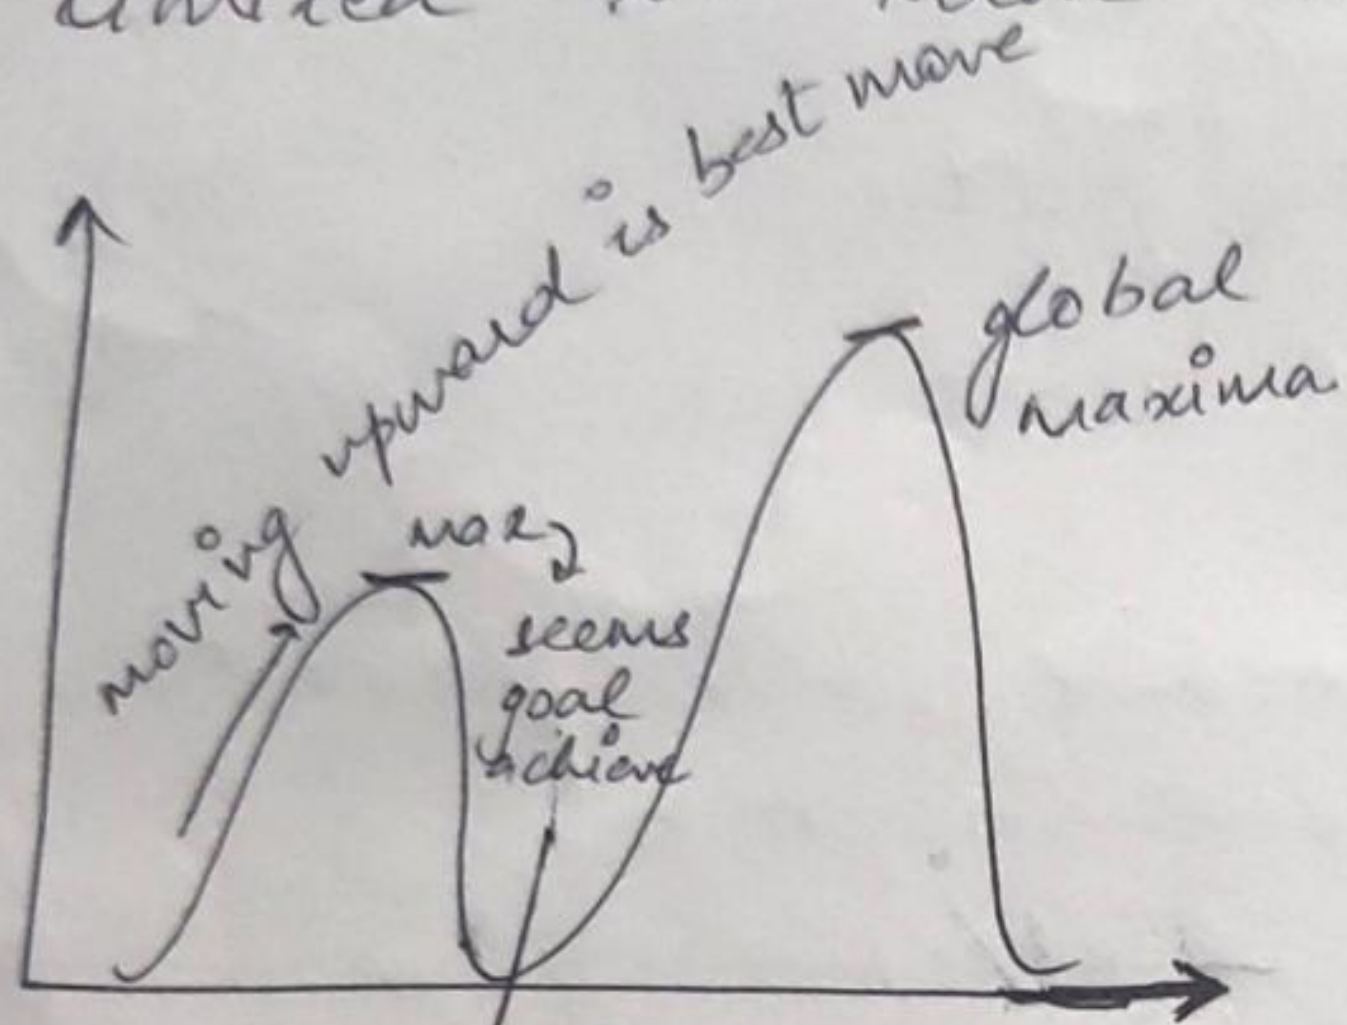 moving upward is best move
global
maxima
max
seems
goal
achieve